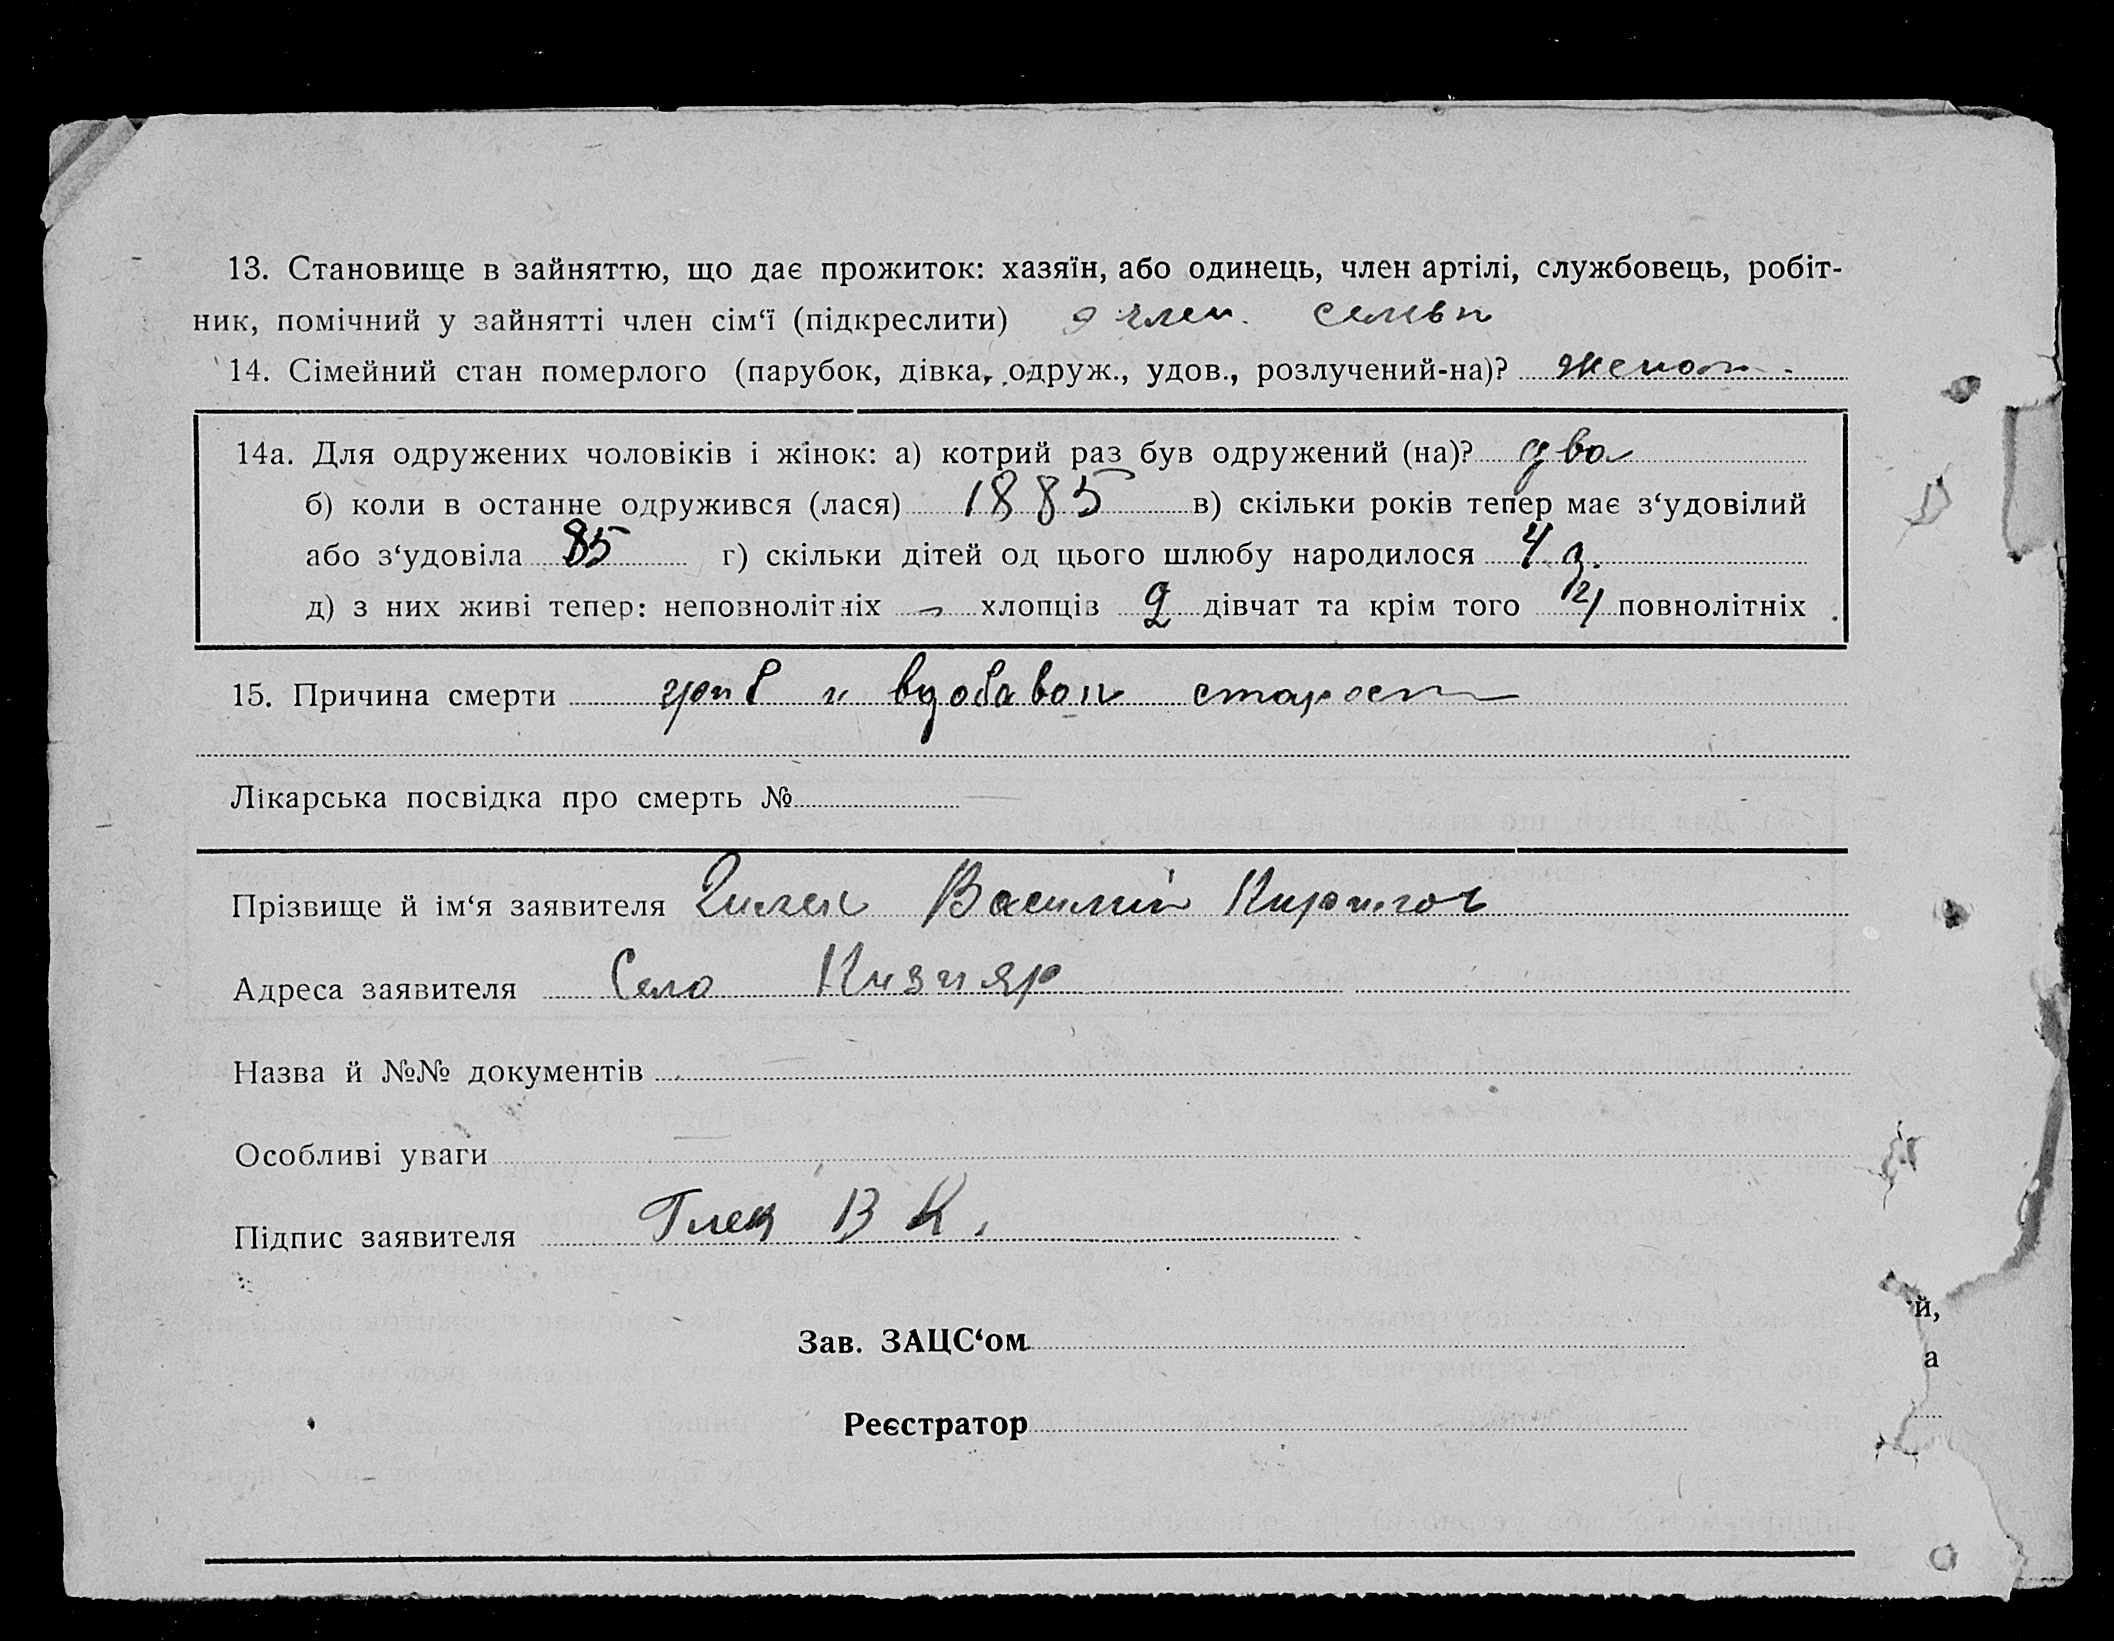 13. Становище в зайняттю, що дає прожиток: хазяїн, або одинець, член артілі, службовець, робіт-
ник, помічний у зайнятті член сім‘ї (підкреслити) член. семьи
14. Сімейний стан померлого (парубок, дівка, одруж., удов., розлучений-на)? женат
14а. Для одружених чоловіків і жінок: а) котрий раз був одружений (на)? два
б) коли в останне одружився (лася) 1885 в) скільки років тепер має з‘удовілий
або з‘удовіла 85 г) скільки дітей од цього шлюбу народилося 4 д.
д) з них живі тепер: неповнолітніх - хлопців 2 дівчат та крім того повнолітніх
15. Причина смерти грип и вдобавок старост
Лікарська посвідка про смерть №
Прізвище й ім‘я заявителя Василий
Адреса заявителя Село Кизияр
Назва й №№ документів
Особливі уваги
Підпис заявителя В К.
Зав. ЗАЦС‘ом
Реєстратор
й,
а